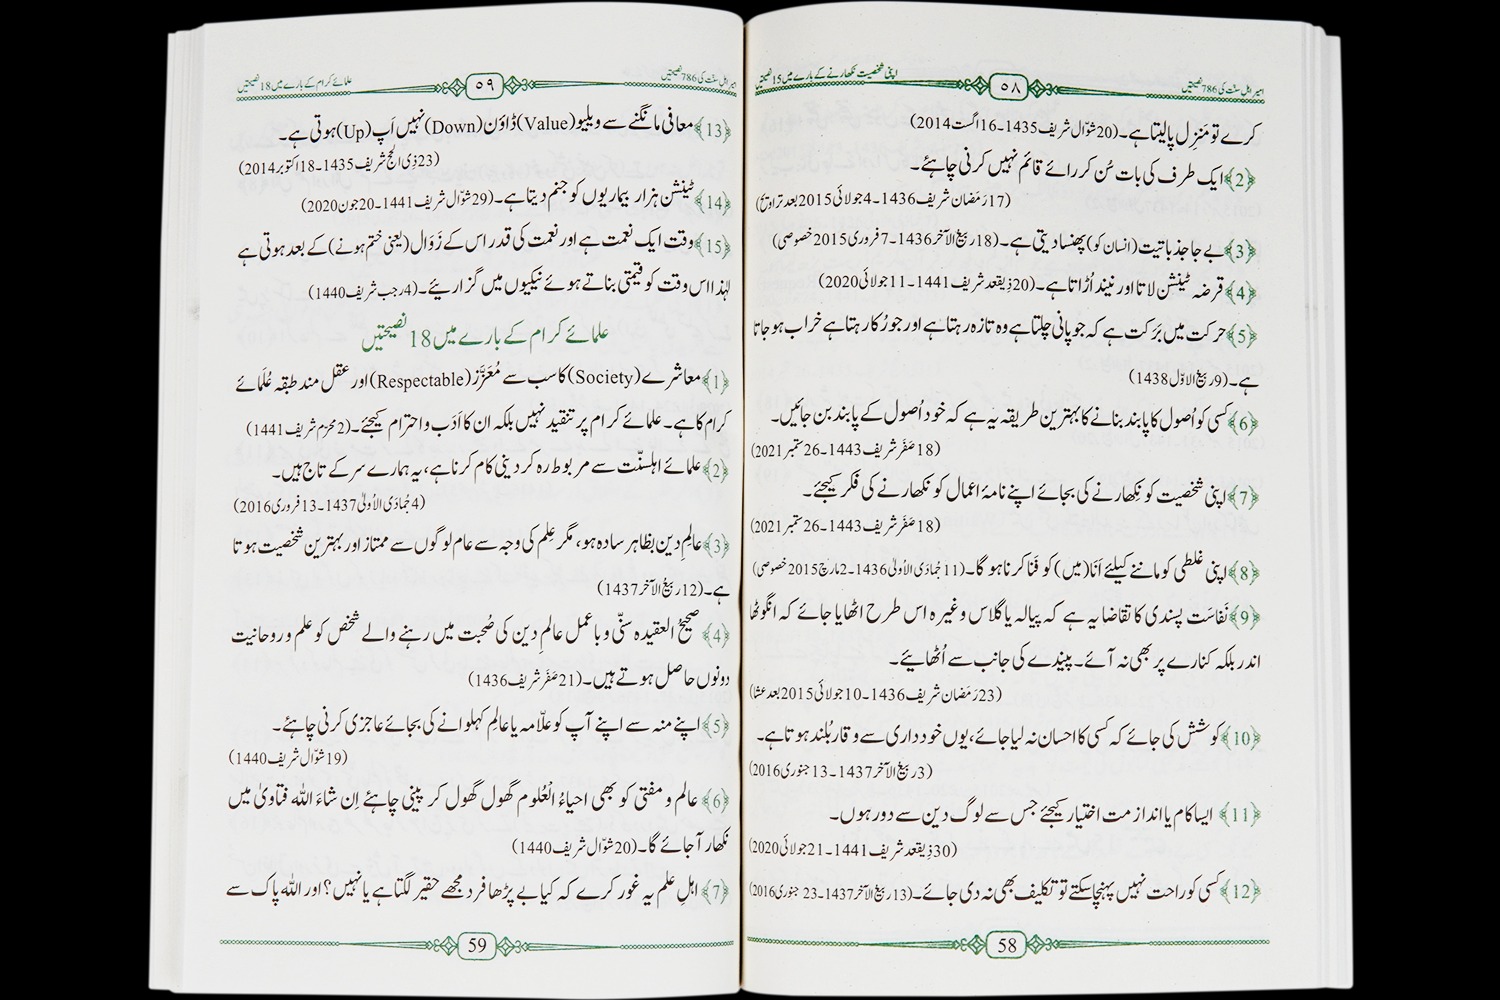 امیرِ اہلِ سنّت کی 786 نصیحتیں
۵۸
اپنی شخصیت نکھارنے کے بارے میں 15 نصیحتیں
کرے تو مَنزِل پالیتا ہے۔ (20 شوّال شریف 1435۔ 16 اگست 2014)
﴿2﴾ ایک طرف کی بات سُن کر رائے قائم نہیں کرنی چاہئے۔
(17 رَمَضان شریف 1436۔ 4 جولائی 2015 بعد تراویح)
﴿3﴾ بے جا جذباتیت (انسان کو) پھنسا دیتی ہے۔ (18 ربیع الآخر 1436۔ 7 فروری 2015 خصوصی)
﴿4﴾ قرضہ ٹینشن لاتا اور نیند اُڑاتا ہے۔ (20 ذِیقعد شریف 1441۔ 11 جولائی 2020)
﴿5﴾ حرکت میں بَرَکت ہے کہ جو پانی چلتا ہے وہ تازہ رہتا ہے اور جو رُکا رہتا ہے خراب ہو جاتا
ہے۔ (9 ربیع الاوّل 1438)
﴿6﴾ کسی کو اُصول کا پابند بنانے کا بہترین طریقہ یہ ہے کہ خود اُصول کے پابند بن جائیں۔
(18 صَفَر شریف 1443۔ 26 ستمبر 2021)
﴿7﴾ اپنی شخصیت کو نِکھارنے کی بجائے اپنے نامۂ اعمال کو نکھارنے کی فکر کیجئے۔
(18 صَفَر شریف 1443۔ 26 ستمبر 2021)
﴿8﴾ اپنی غلطی کو ماننے کیلئے اَنَا (میں) کو فَنا کرنا ہو گا۔ (11 جُمادَی الاُولیٰ 1436۔ 2 مارچ 2015 خصوصی)
﴿9﴾ نَفاسَت پسندی کا تقاضا یہ ہے کہ پیالہ یا گلاس وغیرہ اس طرح اٹھایا جائے کہ انگوٹھا
اندر بلکہ کنارے پر بھی نہ آئے۔ پیندے کی جانب سے اُٹھایئے۔
(23 رَمَضان شریف 1436۔ 10 جولائی 2015 بعد عشا)
﴿10﴾ کوشش کی جائے کہ کسی کا احسان نہ لیا جائے، یوں خودداری سے وقار بُلند ہوتا ہے۔
(3 ربیع الآخر 1437۔ 13 جنوری 2016)
﴿11﴾ ایسا کام یا انداز مت اختیار کیجئے جس سے لوگ دین سے دور ہوں۔
(30 ذِیقعد شریف 1441۔ 21 جولائی 2020)
﴿12﴾ کسی کو راحت نہیں پہنچا سکتے تو تکلیف بھی نہ دی جائے۔ (13 ربیع الآخر 1437۔ 23 جنوری 2016)
58
امیرِ اہلِ سنّت کی 786 نصیحتیں
۵۹
علمائے کرام کے بارے میں 18 نصیحتیں
﴿13﴾ معافی مانگنے سے ویلیو (Value) ڈاؤن (Down) نہیں اَپ (Up) ہوتی ہے۔
(23 ذِی الحج شریف 1435۔ 18 اکتوبر 2014)
﴿14﴾ ٹینشن ہزار بیماریوں کو جنم دیتا ہے۔ (29 شوّال شریف 1441۔ 20 جون 2020)
﴿15﴾ وقت ایک نعمت ہے اور نعمت کی قدر اس کے زَوَال (یعنی ختم ہونے) کے بعد ہوتی ہے
لہٰذا اس وقت کو قیمتی بناتے ہوئے نیکیوں میں گزاریئے۔ (4 رجب شریف 1440)
علمائے کرام کے بارے میں 18 نصیحتیں
﴿1﴾ معاشرے (Society) کا سب سے مُعَزَّز (Respectable) اور عقل مند طبقہ عُلَمائے
کرام کا ہے۔ علمائے کرام پر تنقید نہیں بلکہ ان کا اَدَب و احترام کیجئے۔ (2 محرَّم شریف 1441)
﴿2﴾ علمائے اہلسنّت سے مربوط رہ کر دینی کام کرنا ہے، یہ ہمارے سر کے تاج ہیں۔
(4 جُمادَی الاُولیٰ 1437۔ 13 فروری 2016)
﴿3﴾ عالِمِ دین بظاہر سادہ ہو، مگر عِلم کی وجہ سے عام لوگوں سے ممتاز اور بہترین شخصیت ہوتا
ہے۔ (12 ربیع الآخر 1437)
﴿4﴾ صحیحُ العقیدہ سنّی و باعمل عالمِ دین کی صُحبت میں رہنے والے شخص کو علم و روحانیت
دونوں حاصل ہوتے ہیں۔ (21 صَفَر شریف 1436)
﴿5﴾ اپنے منہ سے اپنے آپ کو علّامہ یا عالِم کہلوانے کی بجائے عاجزی کرنی چاہئے۔
(19 شوّال شریف 1440)
﴿6﴾ عالم و مفتی کو بھی احیاءُ الْعُلوم گھول گھول کر پینی چاہئے اِن شاءَ اللہ فتاویٰ میں
نکھار آ جائے گا۔ (20 شوّال شریف 1440)
﴿7﴾ اہلِ علم یہ غور کرے کہ کیا بے پڑھا فرد مجھے حقیر لگتا ہے یا نہیں؟ اور اللہ پاک سے
59